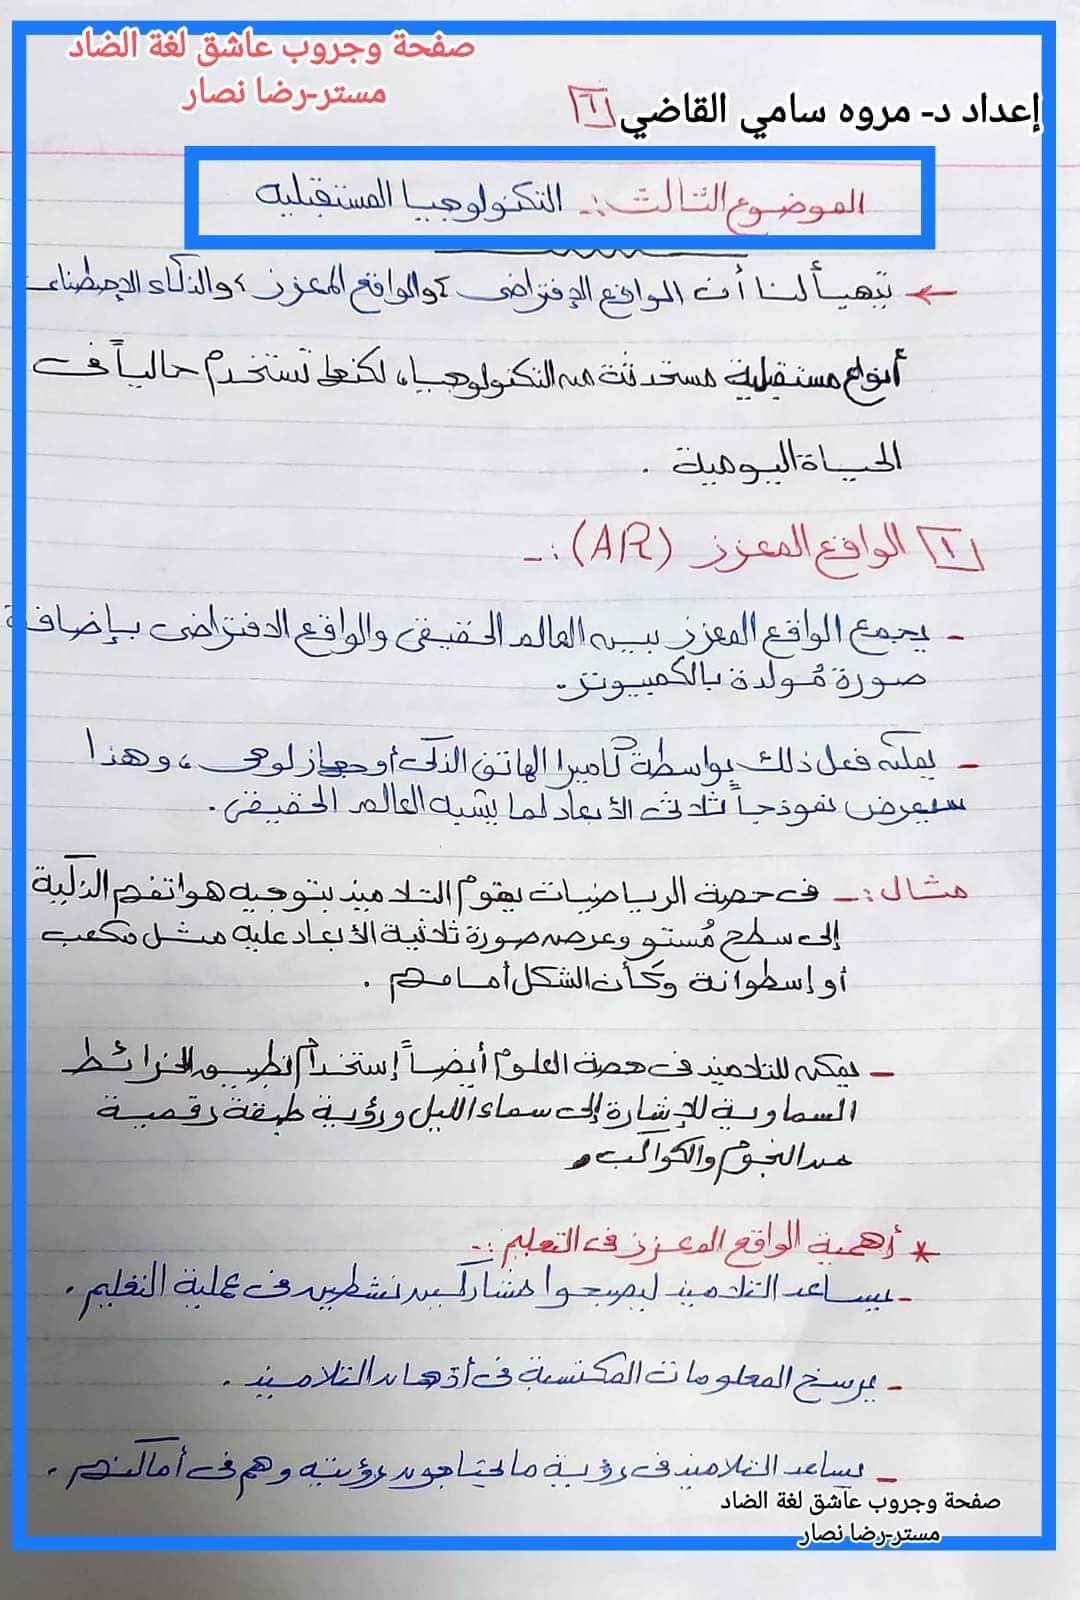 صفحة وجروب عاشق لغة الضاد
مستر-رضا نصار
إعداد د- مروه سامي القاضي
الموضوع الثالث :- التكنولوجيا المستقبلية
← يتهيأ لنا أن الواقع الإفتراضى، والواقع المعزز، والذكاء الإصطناعى
أنواع مستقبلية مستحدثة من التكنولوجيا، لكنها تستخدم حالياً فى
الحياة اليومية .
١ الواقع المعزز (AR) :-
- يجمع الواقع المعزز بين العالم الحقيقى والواقع الافتراضى بإضافة
صورة مُولدة بالكمبيوتر.
- يمكن فعل ذلك بواسطة كاميرا الهاتف الذكى أو جهاز لوحى، وهذا
سيعرض نموذجاً ثلاثى الأبعاد لما يشبه العالم الحقيقى.
مثال :- فى حصة الرياضيات يقوم التلاميذ بتوجيه هواتفهم الذكية
إلى سطح مُستو وعرض صورة ثلاثية الأبعاد عليه مثل مكعب
أو إسطوانة وكأن الشكل أمامهم .
- يمكن للتلاميذ فى حصة العلوم أيضاً إستخدام تطبيق الخرائط
السماوية للإشارة إلى سماء الليل ورؤية طبقة رقمية
من النجوم والكواكب.
* أهمية الواقع المعزز فى التعليم :-
- يساعد التلاميذ ليصبحوا مشاركين نشطين فى عملية التعليم .
- يرسخ المعلومات المكتسبة فى أذهان التلاميذ .
- يساعد التلاميذ فى رؤية ما يحتاجون رؤيته وهم فى أماكنهم .
صفحة وجروب عاشق لغة الضاد
مستر-رضا نصار